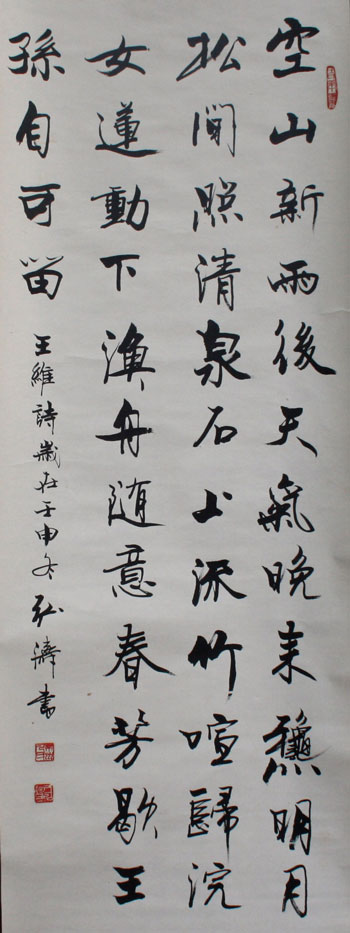 空山新雨後天氣晚来龝明月
松間照清泉石上流竹喧歸浣
女蓮動下漁舟随意春芳歇王
孫自可留
王維詩歲在壬申冬弘書